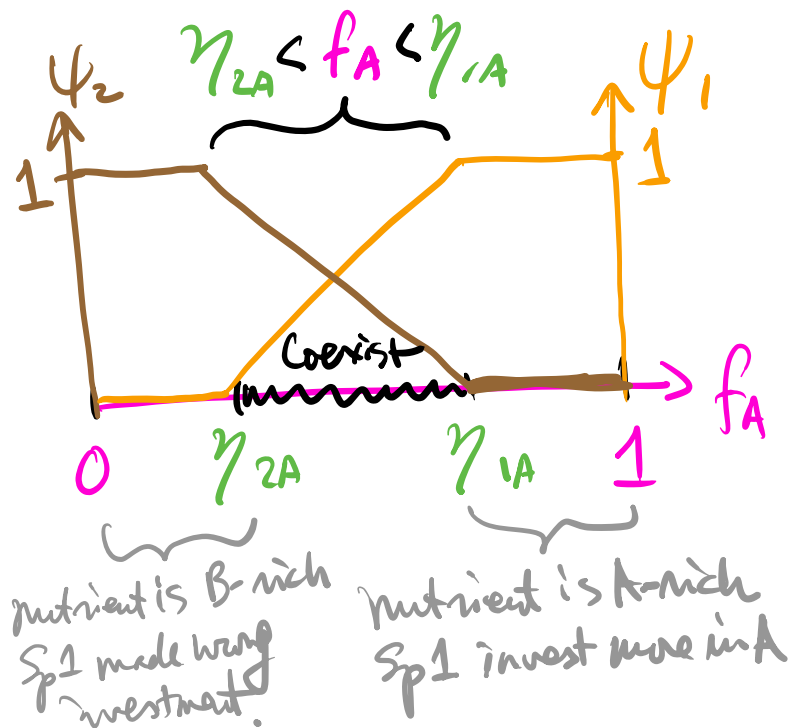 η2A < fA < η1A
ψ2
ψ1
1
1
Coexist
fA
0
η2A
η1A
1
nutrient is B-rich
Sp1 made wrong
investment.
nutrient is A-rich
Sp1 invest more in A